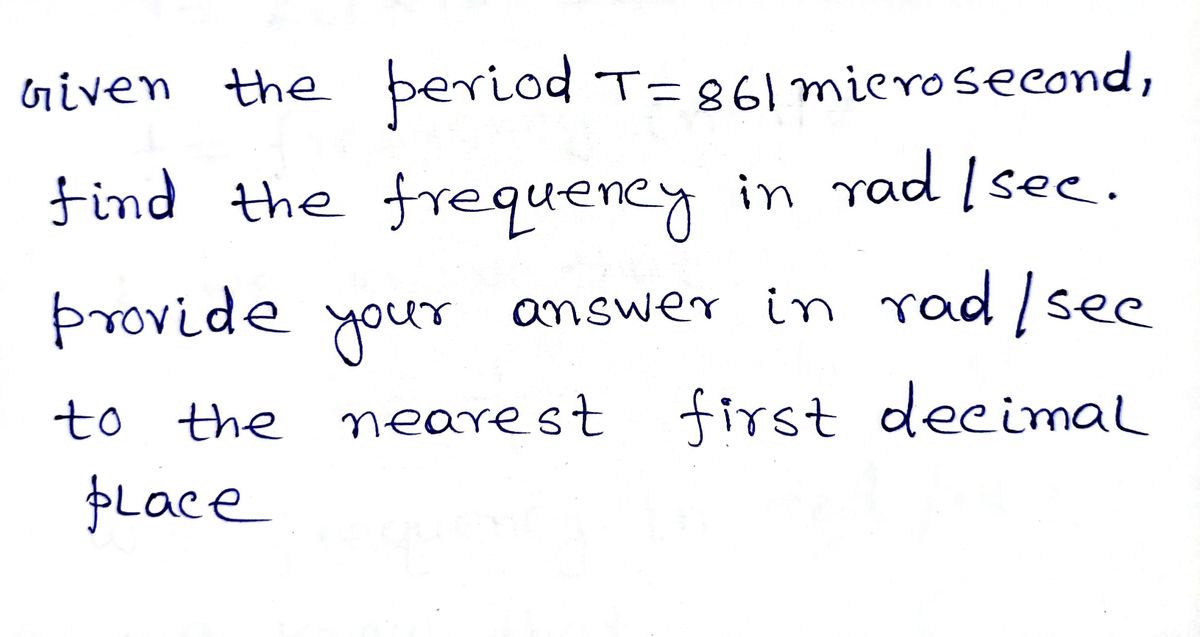 Given the period T=861 microsecond,
find the frequency in rad/sec.
provide your answer in rad/sec
to the nearest first decimal
place